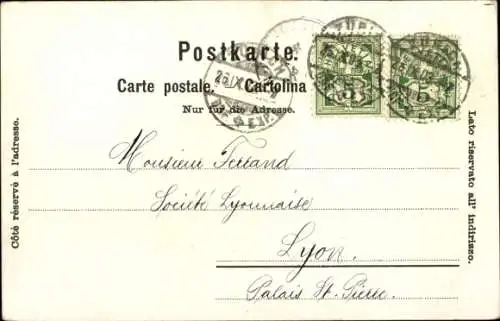 Postkarte.
Carte postale. Cartolina
Nur für die Adresse.
Côté réservé à l'adresse.
Lato riservato all' indirizzo.
5 5
Monsieur Ferrand
Société Lyonnaise
Lyon.
Palais St. Pierre.